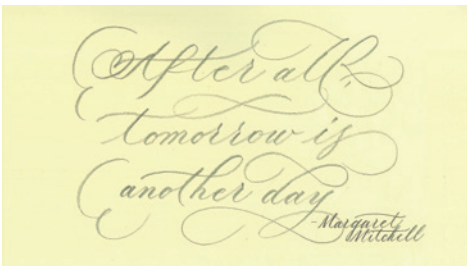 After all,
tomorrow is
another day
-Margaret
Mitchell